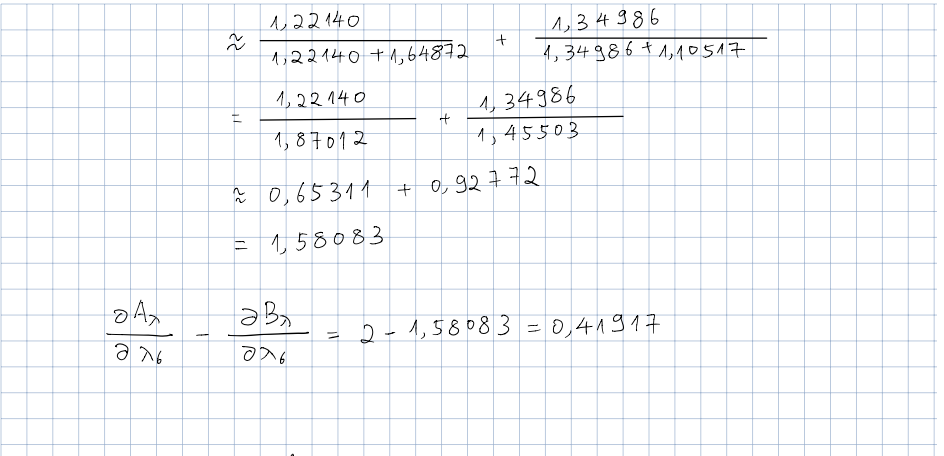 ≈ 1,22140 / (1,22140 + 1,64872) + 1,34986 / (1,34986 + 1,10517)
= 1,22140 / 1,87012 + 1,34986 / 1,45503
≈ 0,65311 + 0,92772
= 1,58083
∂Aλ / ∂λ6 − ∂Bλ / ∂λ6 = 2 − 1,58083 = 0,41917